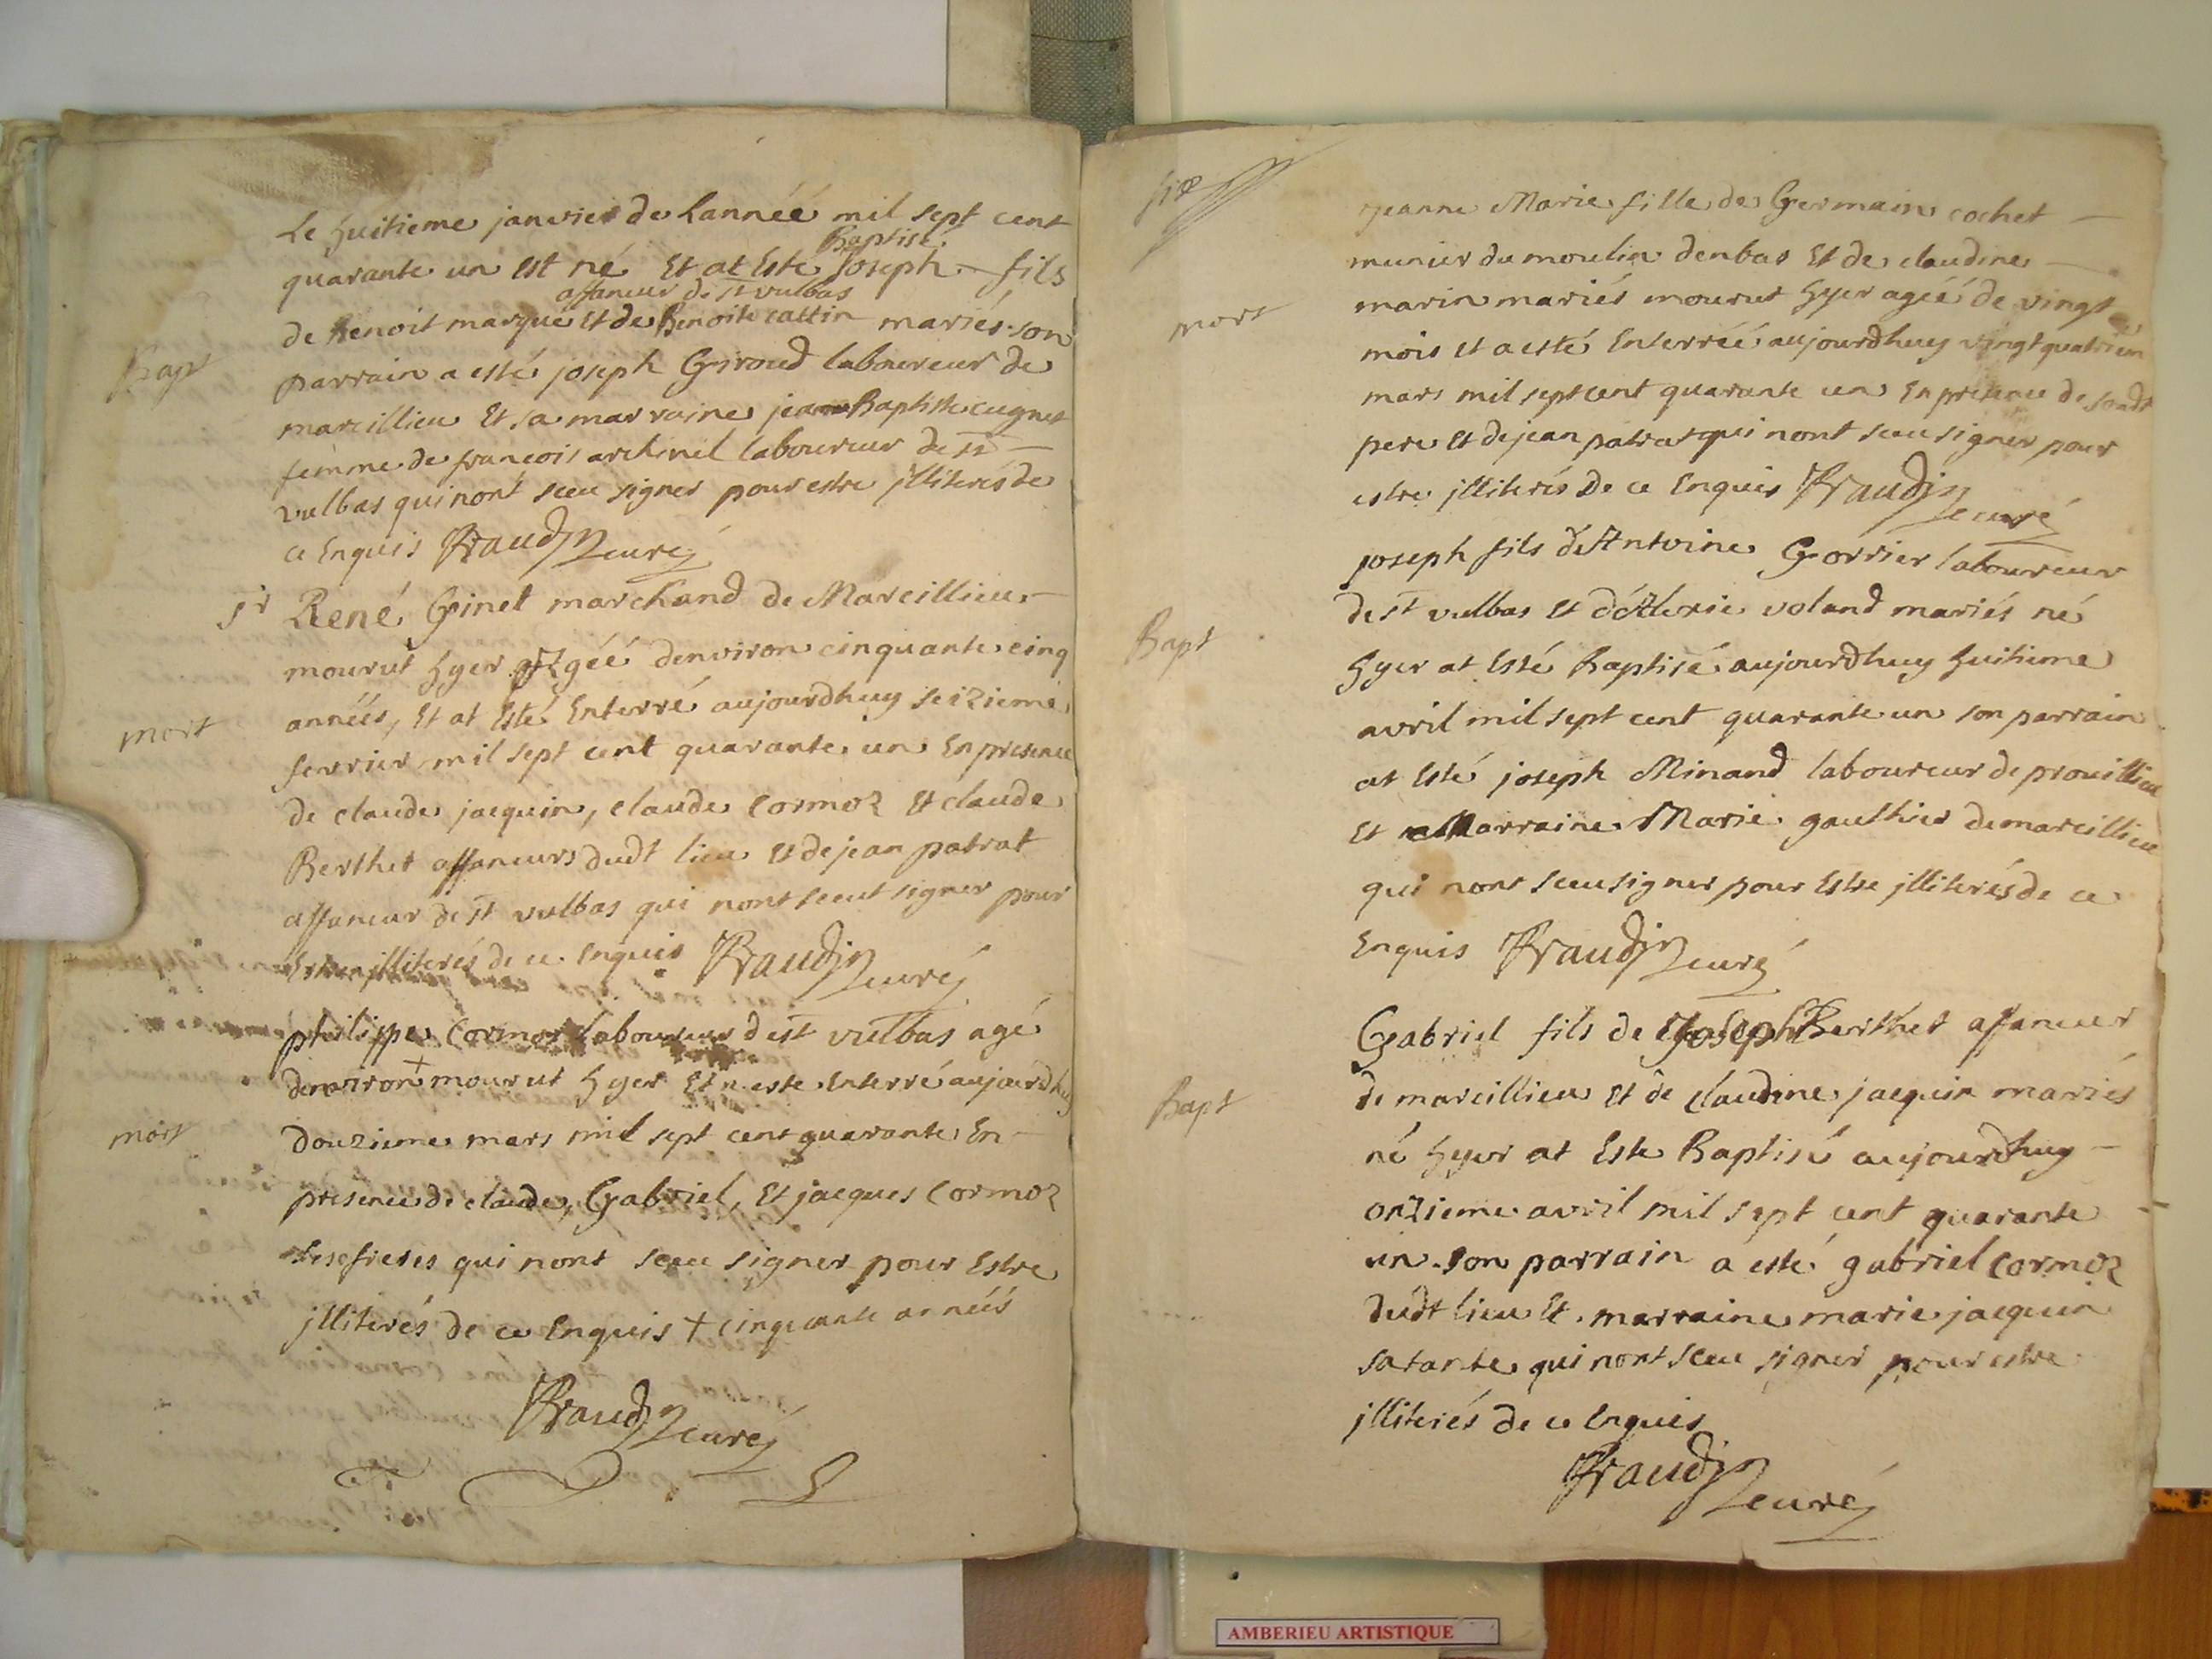 Le huitieme janvier de Lanneé mil sept cent
Baptisé
quarante un est né Et at Esté Joseph - fils
affaneur de st vulbas
de Benoit marque Et de Benoite cattin mariés son
Bapt
parrain a esté joseph Giroud laboureur de
marcillieu Et sa marraine jeanne Baptiste cugnet
femme de francois archinel laboureur de st
vulbas qui nont sceu signer pour estre jlliterés de
ce Enquis Fraudin curé
sr René Ginet marchand de Marcillieu
mourut hyer agéé denviron cinquante cinq
années, Et at Esté Enterré aujourdhuy seizieme
mort
fevrier mil sept cent quarante un En presence
de claude jacquin, claude Cormoz Et claude
Berthet affaneurs dudt lieu et de jean patrat
affaneur de st vulbas qui nont sceut signer pour
Estre jlliterés de ce Enquis Fraudin curé
philippe Cormoz laboureur de st vulbas agé
denviron + mourut hyer Et a este Enterré aujourdhuy
mort
douzieme mars mil sept cent quarante En
presence de claude, Gabriel, Et jacques Cormoz
ses freres qui nont sceu signer pour Estre
jlliterés de ce Enquis + cinquante années
Fraudin curé
Jeanne Marie fille de Germain cochet
munier du moulin denbas Et de claudine
mort
marin mariés mourut hyer ageé de vingt
mois et a esté Enterréé aujourdhuy vingt quatrieme
mars mil sept cent quarante un En presence de sondt
pere Et de jean patrat qui nont sceu signer pour
estre jlliterés De ce Enquis Fraudin curé
Joseph fils d'Antoine Gorrier laboureur
de st vulbas et d'Alexie voland mariés né
Bapt
hyer at Esté Baptisé aujourdhuy huitieme
avril mil sept cent quarante un son parrain
at Esté joseph Minand laboureur de prouillieu
Et Marraine Marie gaulthier de marcillieu
qui nont sceu signer pour Estre jlliterés de ce
Enquis Fraudin curé
Gabriel fils de Joseph Berthet affaneur
de marcillieu Et de claudine jacquin mariés
Bapt
né hyer at Este Baptisé aujourdhuy
onzieme avril mil sept cent quarante
un son parrain a esté gabriel Cormoz
dudt lieu Et marraine marie jacquin
sa tante qui nont sceu signer pour estre
jlliterés de ce Enquis
Fraudin curé
AMBERIEU ARTISTIQUE